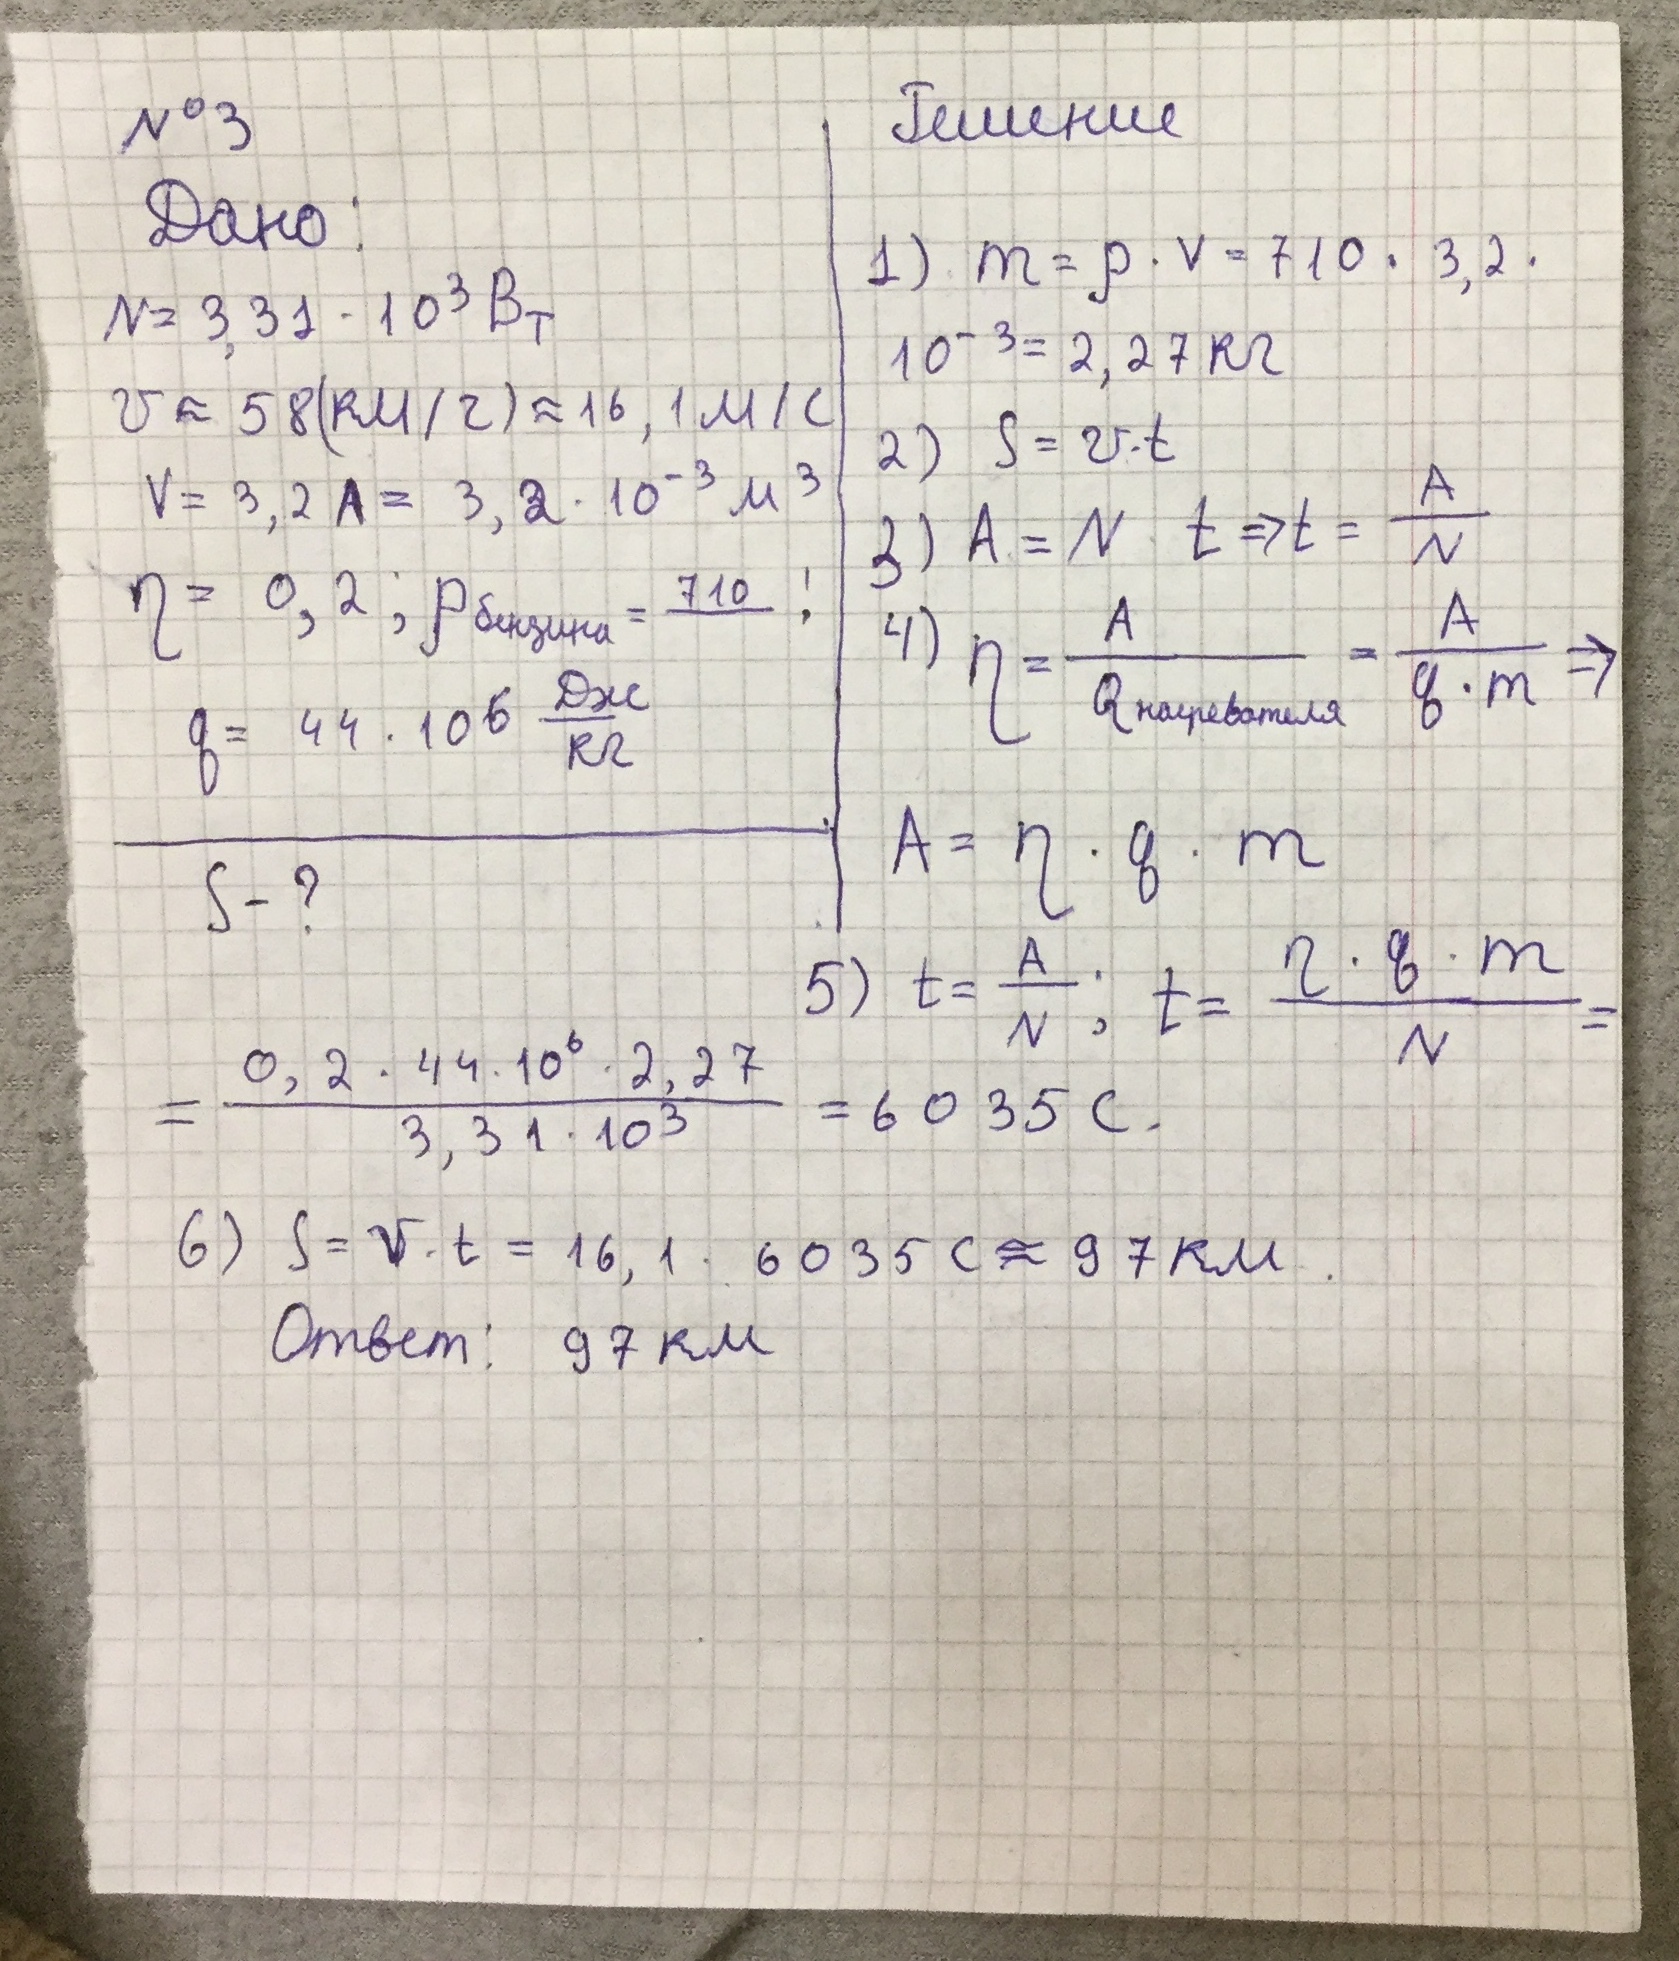 №3
Дано:
N = 3,31 · 10³ Вт
v ≈ 58 (км/ч) ≈ 16,1 м/с
V = 3,2 л = 3,2 · 10⁻³ м³
η = 0,2; ρ бензина = 710/ ;
q = 44 · 10⁶ Дж/кг
S - ?
Решение
1) m = ρ · V = 710 · 3,2 ·
10⁻³ = 2,27 кг
2) S = v · t
3) A = N t ⇒ t = A/N
4) η = A/Q нагревателя = A/(q · m) ⇒
A = η · q · m
5) t = A/N; t = (η · q · m)/N =
= (0,2 · 44 · 10⁶ · 2,27)/(3,31 · 10³) = 6035 с.
6) S = v · t = 16,1 · 6035 с ≈ 97 км.
Ответ: 97 км